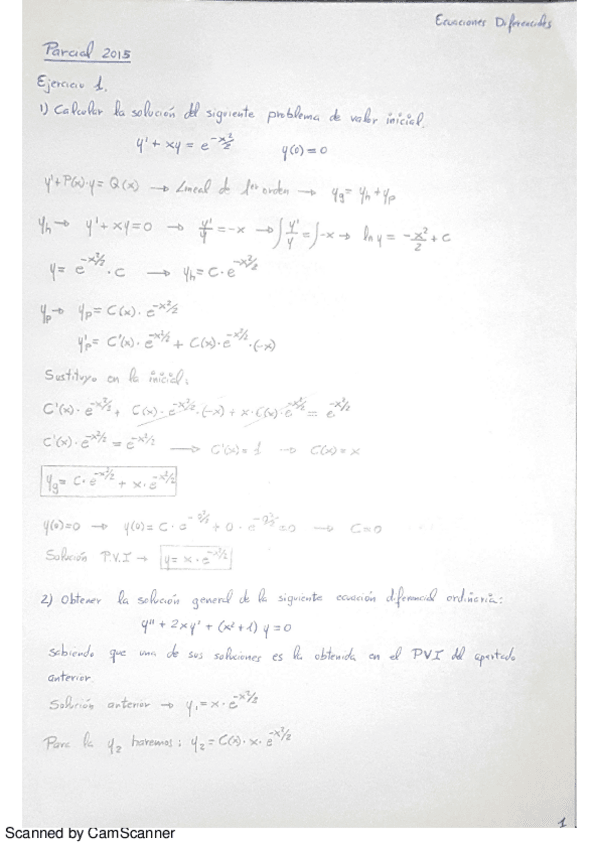 Ecuaciones Diferenciales
Parcial 2015
Ejercicio 1.
1) Calcular la solución del siguiente problema de valor inicial.
y' + xy = e^{-x²/2}    y(0)=0
y'+P(x)·y = Q(x) → Lineal de 1er orden → yg = yh + yp
yh → y' + xy = 0 → y'/y = -x → ∫ y'/y = ∫ -x → ln y = -x²/2 + C
y = e^{-x²/2} · C → yh = C · e^{-x²/2}
yp → yp = C(x) · e^{-x²/2}
y'p = C'(x) · e^{-x²/2} + C(x) · e^{-x²/2} · (-x)
Sustituyo en la inicial:
C'(x) · e^{-x²/2} + C(x) · e^{-x²/2} · (-x) + x · C(x) · e^{-x²/2} = e^{-x²/2}
C'(x) · e^{-x²/2} = e^{-x²/2} → C'(x) = 1 → C(x) = x
yg = C · e^{-x²/2} + x · e^{-x²/2}
y(0)=0 → y(0) = C · e^{-0²/2} + 0 · e^{-0²/2} = 0 → C=0
Solución P.V.I → y = x · e^{-x²/2}
2) Obtener la solución general de la siguiente ecuación diferencial ordinaria:
y'' + 2xy' + (x²+1) y = 0
Sabiendo que una de sus soluciones es la obtenida en el PVI del apartado
anterior.
Solución anterior → y₁ = x · e^{-x²/2}
Para la y₂ haremos: y₂ = C(x) · x · e^{-x²/2}
1
Scanned by CamScanner